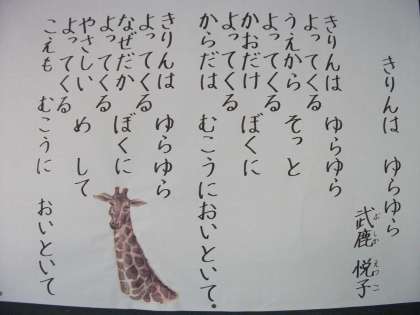 きりんは ゆらゆら
武鹿 悦子
ぶしか えつこ
きりんは ゆらゆら
よってくる
うえから そっと
よってくる
かおだけ ぼくに
よってくる
からだは むこうにおいといて。
きりんは ゆらゆら
よってくる
なぜだか ぼくに
よってくる
やさしい め して
よってくる
こえも むこうに おいといて